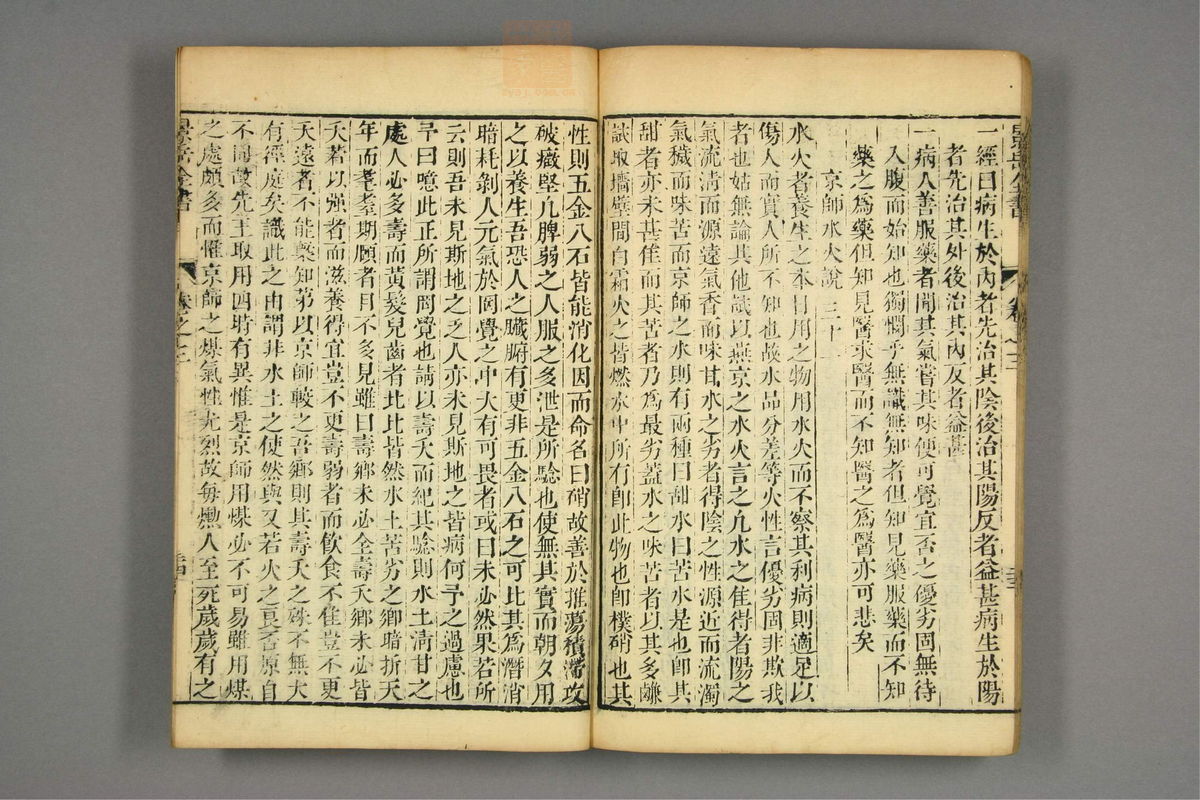 一經曰病生於內者先治其陰後治其陽反者益甚病生於陽
者先治其外後治其內反者益甚
一病人善服藥者聞其氣嘗其味便可覺宜否之優劣固無待
入腹而始知也獨憫乎無識無知者但知見藥服藥而不知
藥之爲藥但知見醫求醫而不知醫之爲醫亦可悲矣
京師水火說 三十
水火者養生之本日用之物用水火而不察其利病則適足以
傷人而實人所不知也故水品分差等火性言優劣固非欺我
者也姑無論其他試以燕京之水火言之凡水之佳得者陽之
氣流清而源遠氣香而味甘水之劣者得陰之性源近而流濁
氣穢而味苦而京師之水則有兩種曰甜水曰苦水是也卽其
甜者亦未甚佳而其苦者乃爲最劣蓋水之味苦者以其多鹻
試取墻壁間白霜火之皆燃水中所有卽此物也卽樸硝也其
性則五金八石皆能消化因而命名曰硝故善於推蕩積滯攻
破癥堅凡脾弱之人服之多泄是所驗也使無其實而朝夕用
之以養生吾恐人之臟腑有更非五金八石之可比其爲潛消
暗耗剝人元氣於罔覺之中大有可畏者或曰未必然果若所
云則吾未見斯地之乏人亦未見斯地之皆病何予之過慮也
予曰噫此正所謂罔覺也請以壽夭而紀其驗則水土清甘之
處人必多壽而黃髮兒齒者比比皆然水土苦劣之鄉暗折天
年而耄耋期頤者目不多見雖曰壽鄉未必全壽夭鄉未必皆
夭若以强者而滋養得宜豈不更壽弱者而飲食不佳豈不更
夭遠者不能槩知第以京師較之吾鄉則其壽夭之殊不無大
有徑庭矣識此之由謂非水土之使然與又若火之良否原自
不同故先王取用四時有異惟是京師用煤必不可易雖用煤
之處頗多而惟京師之煤氣性尤烈故每燻人至死歲歲有之
景岳全書
卷之三
景岳全書
卷之三